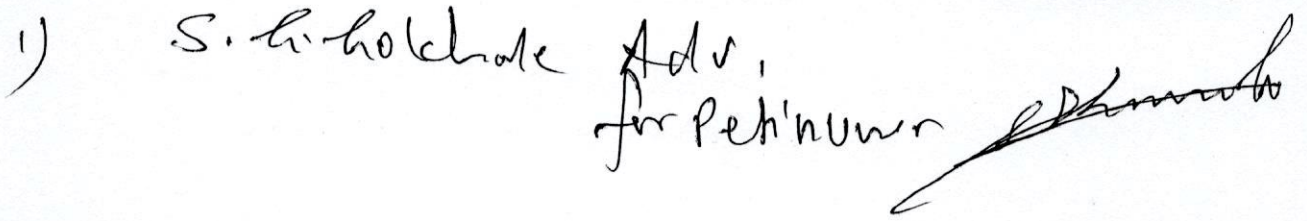 1) S. G. Gokhale Adv.
for Petitioner